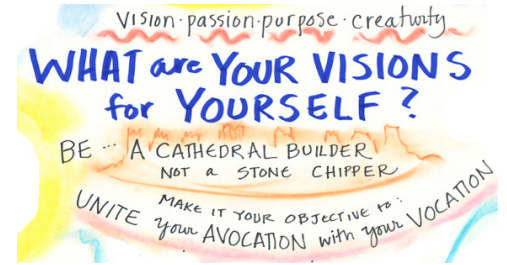 vision · passion · purpose · creativity
WHAT are YOUR VISIONS
for YOURSELF?
BE... A CATHEDRAL BUILDER
NOT a STONE CHIPPER
MAKE IT YOUR OBJECTIVE to:
UNITE your AVOCATION with your VOCATION